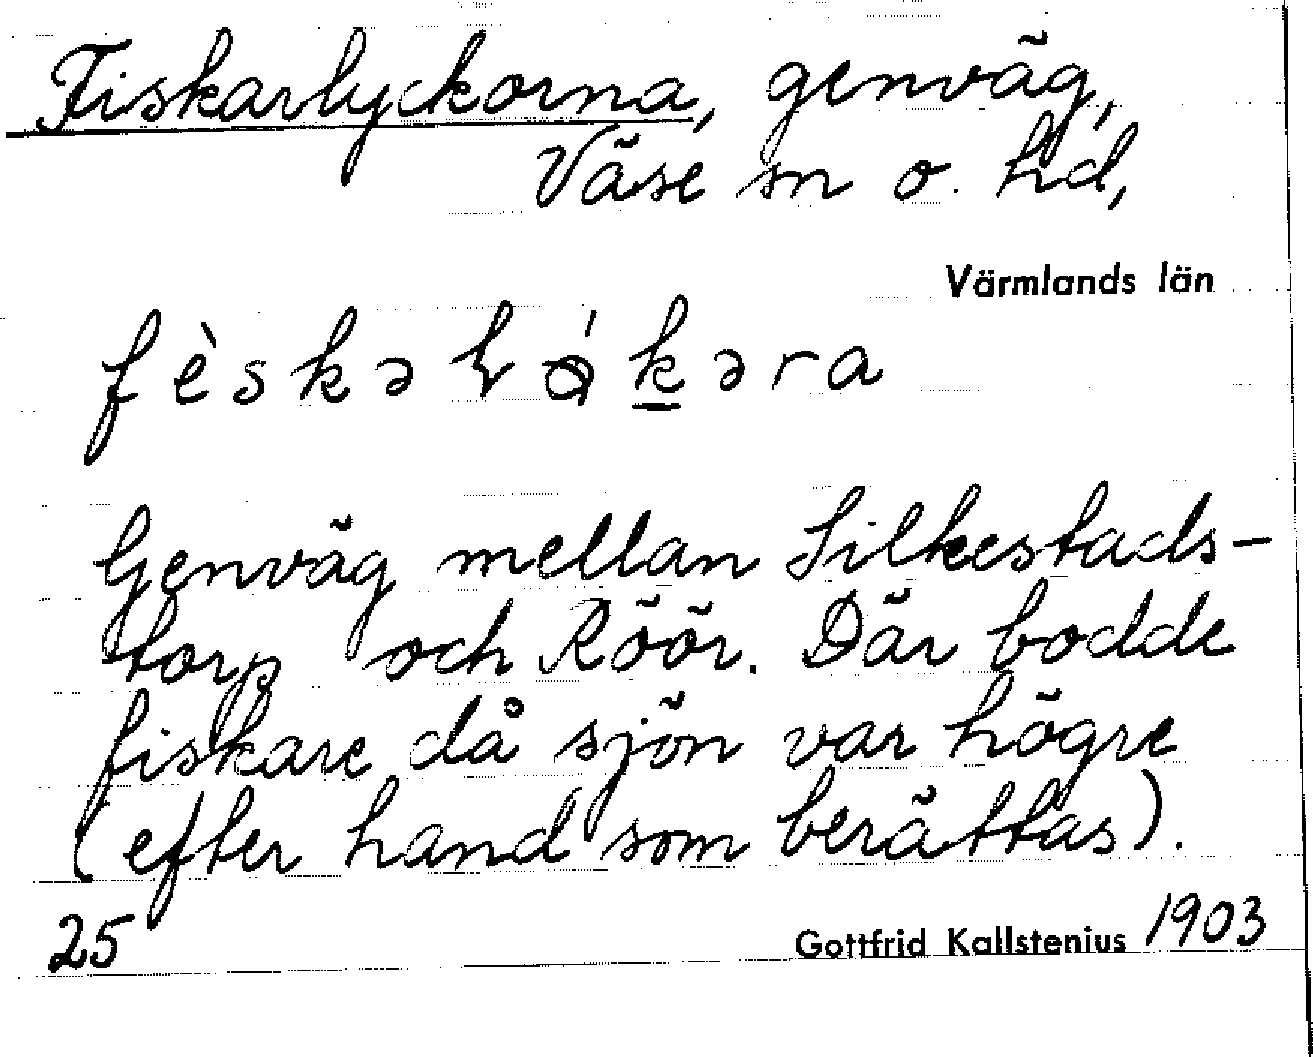 Fiskarlyckorna, genväg,
Väse sn o. hd,
Värmlands län
Genväg mellan Silkestads-
torp och Röör. Där bodde
fiskare då sjön var högre
(efter hand som berättas).
25
Gottfrid Kallstenius 1903